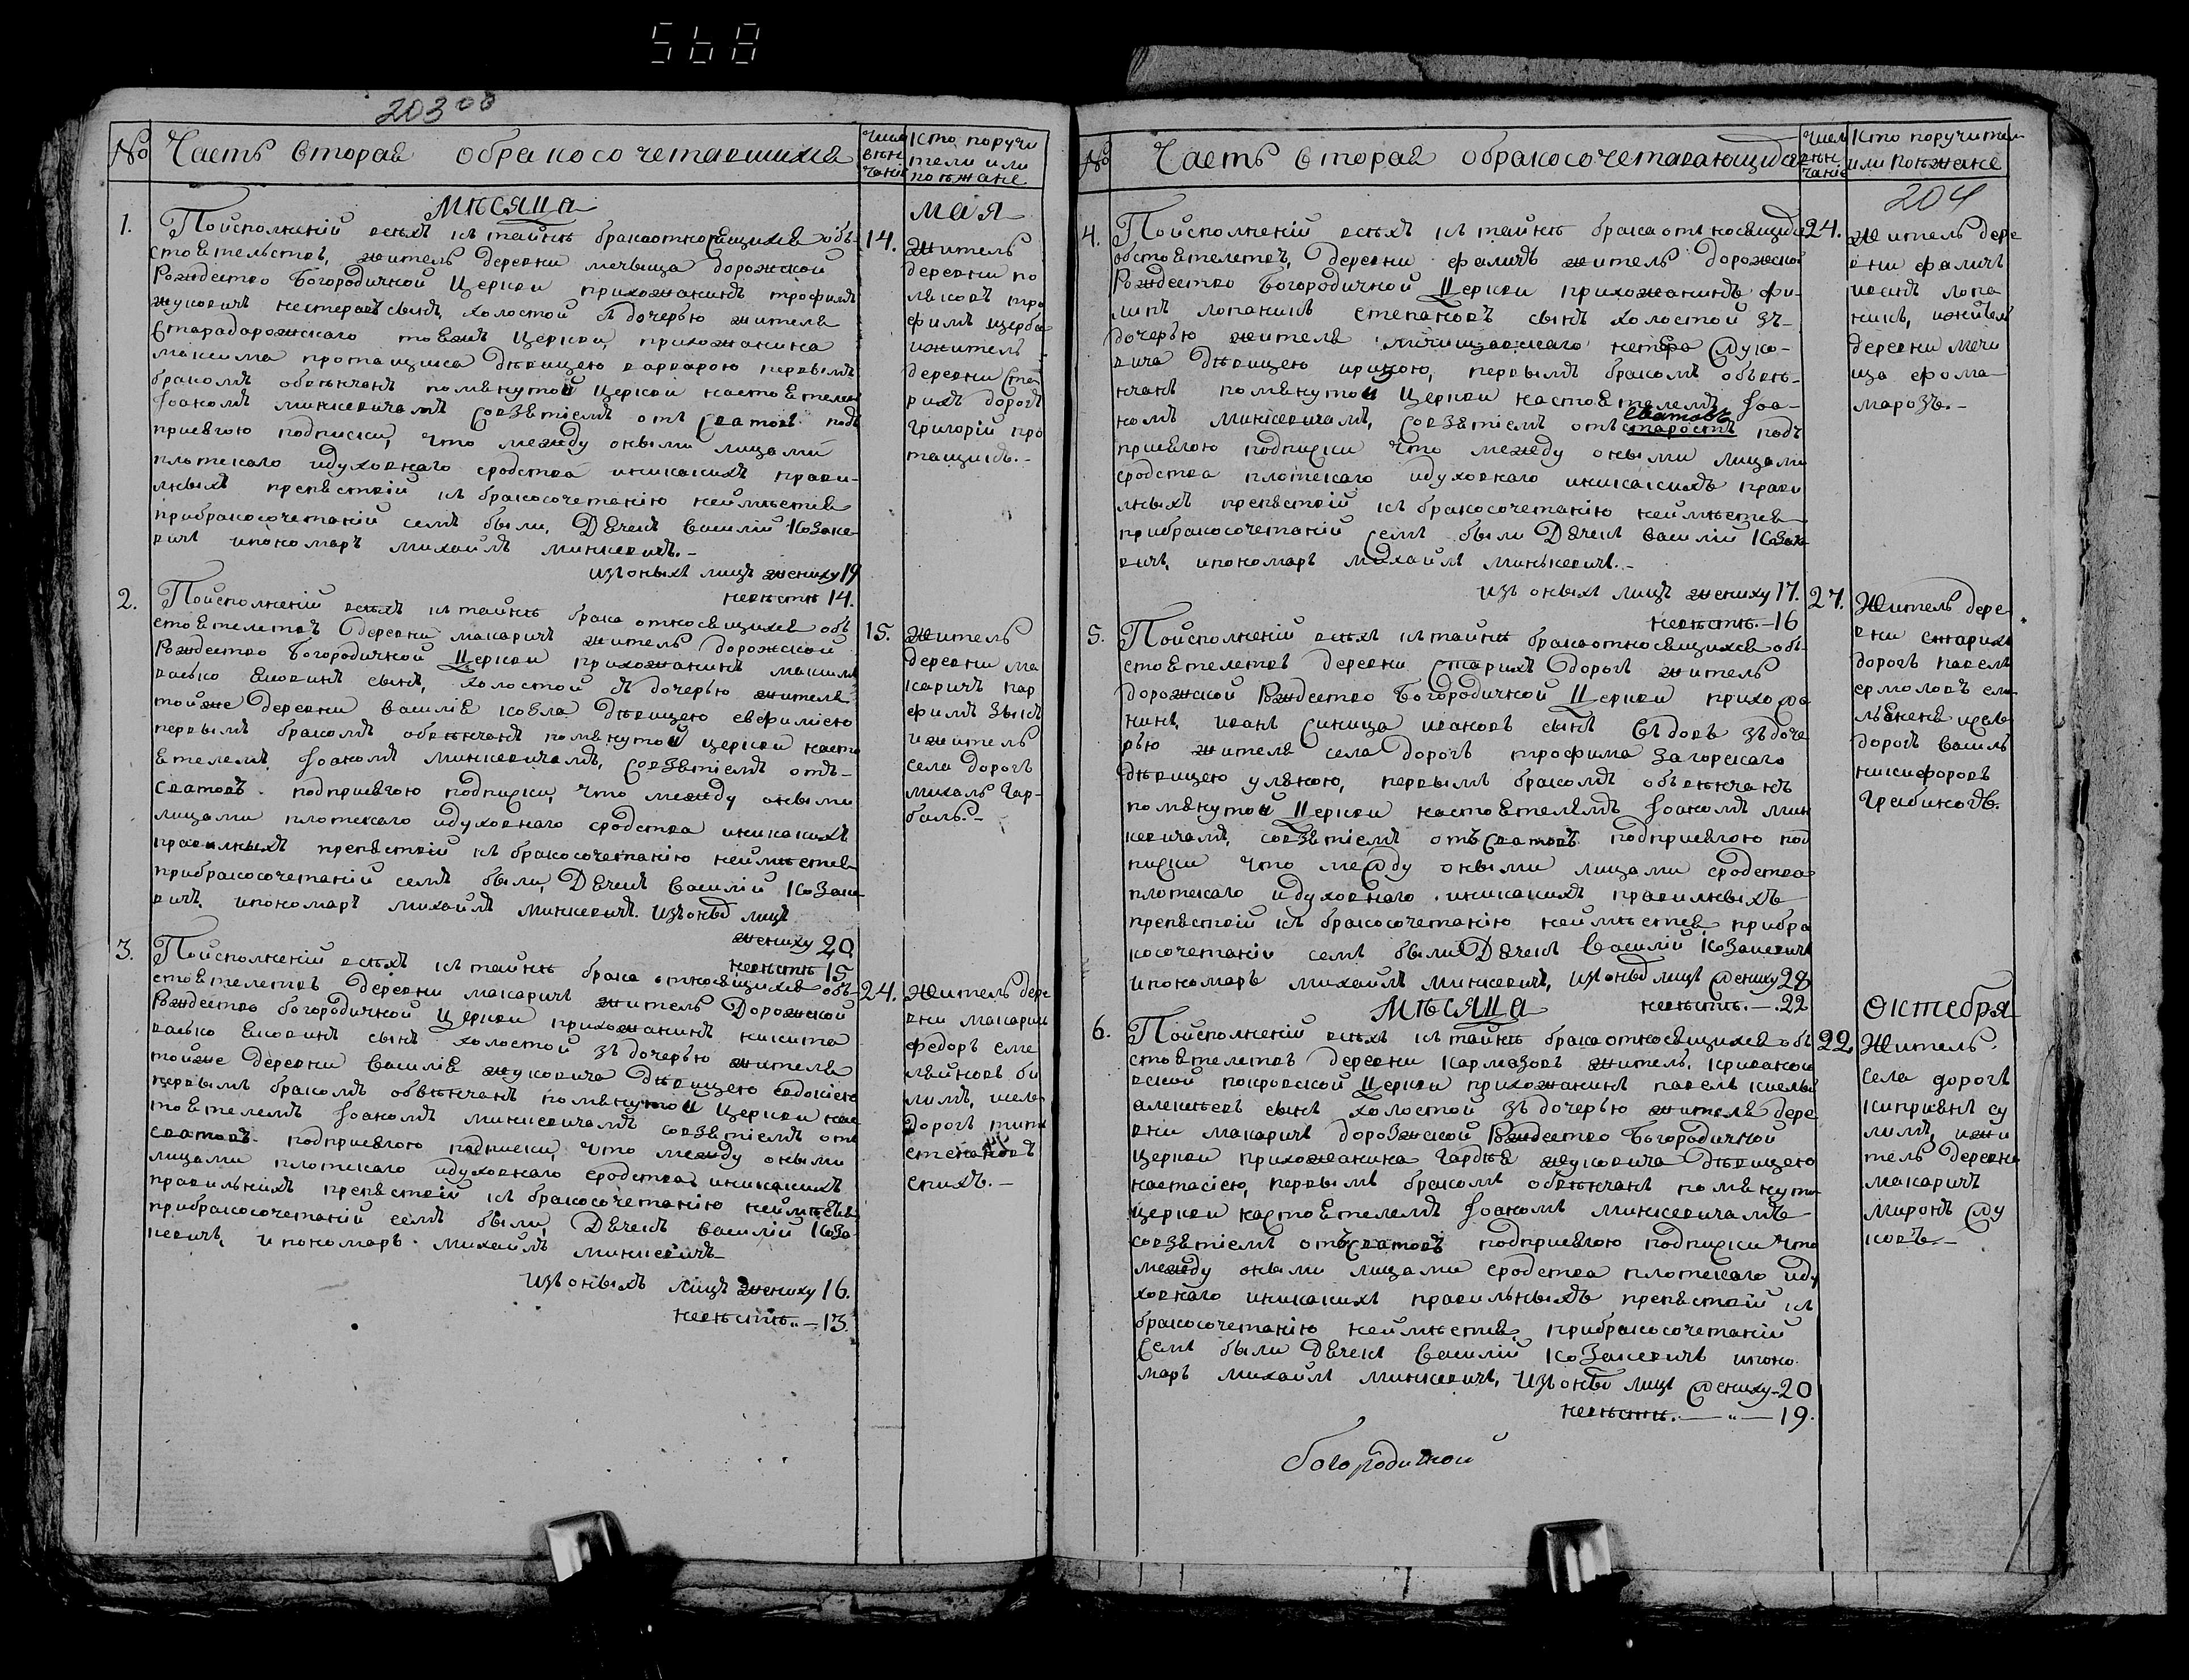 568
203 об
№
Часть вторая обракосочетавшихся
Числа
вѣн
чанія
Кто поручи
тели или
поѣжане
Мѣсяца
мая
1.
Поисполненій всѣхъ къ тайнѣ бракаотносящихся объ-
стоятельствъ, житель деревни мечыща дорожской
Рождество Богородичной Церкви прихожанинъ трофимъ
жуковичъ нестеровъ сынъ, холостой зъ дочерью жителя
Старадорожскаго тояжъ Церкви, прихожанина
максима протащика дѣвицею варварою первымъ
бракомъ обвѣнчанъ помянутой церкви настоятелемъ
Іоаномъ минкевичамъ совзятіемъ отъ сватовъ подъ
присягою подписки, что между оными лицами
плотскаго идуховнаго сродства иникакихъ прави-
лныхъ препятствій къ бракосочетанію неимѣется
прибракосочетаній семъ были, Дячекъ василій Козаке-
вичъ ипономаръ михайлъ минкевичъ.-
изъ оныхъ лицъ жениху 19
невѣстѣ 14.
14.
житель
деревни по
ляковъ тро
фимъ щерба
ижитель
деревни Ста
рихъ дорогъ
григорій про
тащикъ.-
2.
Поисполненій всѣхъ къ тайнѣ брака относящихся объ
стоятелствъ деревни макаричъ житель дорожской
Рождество Богородичной Церкви прихожанинъ максимъ
валько сынъ, холостой зъ дочерью жителя
тойже деревни василія козла дѣвицею евфиміею
первымъ бракомъ обвѣнчанъ помянутой церкви насто
ятелемъ Іоаномъ минкевичамъ, совзятіемъ отъ-
сватовъ подприсягою подписки, что между оными
лицами плотскаго идуховнаго сродства иникакихъ
правилныхъ препятствій къ бракосочетанію неимѣется
прибракосочетаній семъ были, Дячекъ Василій Козаке
вичъ, ипономаръ михайлъ минкевичъ. изъ оныхъ лицъ
жениху 20
невѣстѣ 15
15.
житель
деревни ма
каричъ пар
фимъ зыкъ
ижитель
села дорогъ
михаль гар-
биль.-
3.
Поисполненій всѣхъ къ тайнѣ брака относящихся объ-
стоятелствъ деревни макаричъ житель Дорожской
Рождество богородичной Церкви прихожанинъ никита
валько сынъ холостой зъ дочерью жителя
тойже деревни василія жуковича дѣвицею евдокіею
первымъ бракомъ обвѣнчанъ помянутой церкви нас
тоятелемъ Іоаномъ минкевичамъ совзятіемъ отъ
сватовъ подприсягою подписки, что между оными
лицами плотскаго идуховнаго сродства иникакихъ
правильнихъ препятствій къ бракосочетанію неимѣется
прибракосочетаній семъ были, Дячекъ василій Коза-
кевичъ, ипономаръ михайлъ минкевичъ
изъ онвыхъ лицъ жениху 16.
невѣстѣ.. - 13.
24.
Житель дере
вни макаричъ
федоръ еме
льяновъ би
лимъ, исела
дорогъ тит
степановъ
спихъ.-
№
Часть вторая обракосочетавающихся
Числ
вѣн
чаніе
Кто поручители
или поѣжане
204
4.
Поисполненій всѣхъ къ тайнѣ брака относящихся
обстоятелствъ, деревни фаличъ житель дорожской
Рождество Богородичной Церкви прихожанинъ фи-
липъ лопаникъ степановъ сынъ холостой зъ-
дочерью жителя мичищовскаго нестера жуко-
вича дѣвицею ириною, первымъ бракомъ обвѣ-
нчанъ помянутой Церкви настоятелемъ Іоа-
номъ минкевичамъ, совзятіемъ отъ старостъ сватовъ подъ
присягою подписки что между оными лицами
сродства плотскаго идуховнаго иникакихъ прави
лныхъ препятствій къ бракосочетанію неимѣется
прибракосочетаній семъ были Дячекъ василій Козаке
вичъ, ипономаръ михайлъ минькевичъ.-
изъ оныхъ лицъ жениху 17.
невѣстѣ.-16
24.
житель дере
вни фаличъ
иванъ лопа
никъ, ижитель
деревни мечи
ща фома
марозъ.-
5.
Поисполненій всѣхъ къ тайнѣ бракаотносящихся объ-
стоятелствъ деревни Старихъ дорогъ житель
дорожской Рождество Богородичной Церкви прихожа
нинъ, иванъ Синица ивановъ сынъ вдовъ зъдоче
рью жителя села дорогъ трофима загорскаго
дѣвицею уляною, первымъ бракомъ обвѣнчанъ
помянутой Церкви настоятелемъ Іоаномъ мин
кевичамъ, совзятіемъ отъ сватовъ подприсягою под
писки что между оными лицами сродства
плотскаго идуховнаго иникакихъ правилныхъ
препятствій къ бракосочетанію неимѣется, прибра
косочетаніи семъ были Дячекъ Василій Козакевичъ
ипономаръ михайлъ минкевичъ, изъ оныхъ лицъ жениху 28
невѣстѣ.-.22
27.
Житель дере
вни старихъ
дорогъ павелъ
ермоловъ еме
льяненя исела
дорогъ василь
никифоровъ
Мѣсяца
Октебря
6.
Поисполненій всѣхъ къ тайнѣ бракаотносящихся объ
стоятелствъ деревни Кармазовъ житель, кривонос
вской покровской Церкви прихожанинъ павелъ
алексѣевъ сынъ холостой зъ дочерью жителя дере
вни макаричъ дорозжской Рождество Богородичной
Церкви прихожанина гардѣя жуковича дѣвицею
настасіею, первымъ бракомъ обвѣнчанъ помянутой
Церкви настоятелемъ Іоаномъ минкевичамъ
совзятіемъ отъ сватовъ подприсягою подписки что
между оными лицами сродства плотскаго иду
ховнаго иникакихъ правильныхъ препятствій къ
бракосочетанію неимѣется прибракосочетаній
семъ были Дячекъ Василій Козакевичъ ипоно
маръ михайлъ минкевичъ, изъ оныхъ лицъ жениху-20
невѣстѣ.-„-19.
22.
Житель
села дорогъ
киприянъ су
лимъ, ижи
тель деревни
макаричъ
миронъ жу
ковъ.-
богородичной